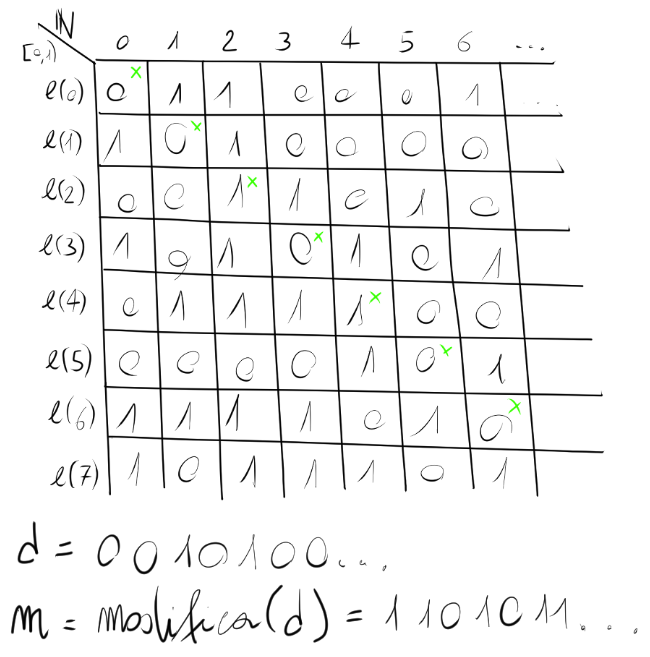 IN
[0,1) 0 1 2 3 4 5 6 ...
l(0) 0 × 1 1 0 0 0 1 ...
l(1) 1 0 × 1 0 0 0 0
l(2) 0 0 1 × 1 0 1 0
l(3) 1 0 1 0 × 1 0 1
l(4) 0 1 1 1 1 × 0 0
l(5) 0 0 0 0 1 0 × 1
l(6) 1 1 1 1 0 1 0 ×
l(7) 1 0 1 1 1 0 1
d = 0010100...
m = modifica(d) = 1101011....